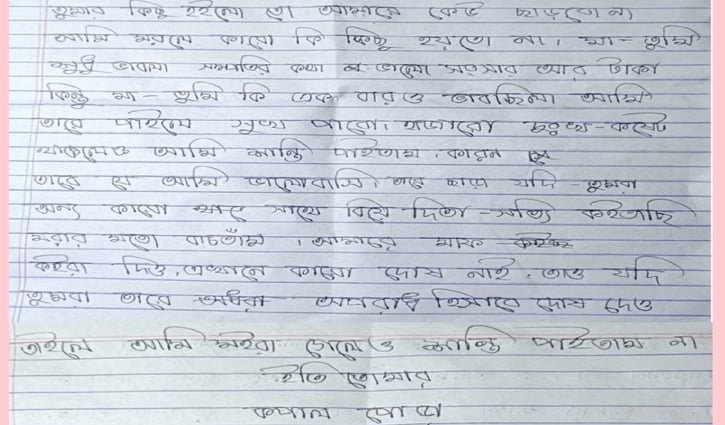 তুমার কিছু হইলে তো আমারে কেউ ছাড়তো না
আমি মরলে কারো কি কিছু হয়তো না। মা - তুমি
শুধু ভাবলা সম্পত্তির কথা ভালো সংসার আর টাকা
কিন্তু মা - তুমি কি একবারও ভাবছিলা আমি
তারে পাইলে সুখ পাবো। হাজারো দুঃখ-কষ্টে
থাকলেও আমি শান্তি পাইতাম। কারন
তারে যে আমি ভালোবাসি। তারে ছাড়া যদি - তুমরা
অন্য কারো সাথে বিয়ে দিতা - সত্যি কইতাছি
মরার মতো বাচতাম। আমারে মাফ
কইরা দিও। এখানে কারো দোষ নাই। তাও যদি
তুমরা তারে অপরাধি হিসাবে দোষ দেও
তাইলে আমি মইরা গেলেও শান্তি পাইতাম না
ইতি তোমার
কপাল পোড়া